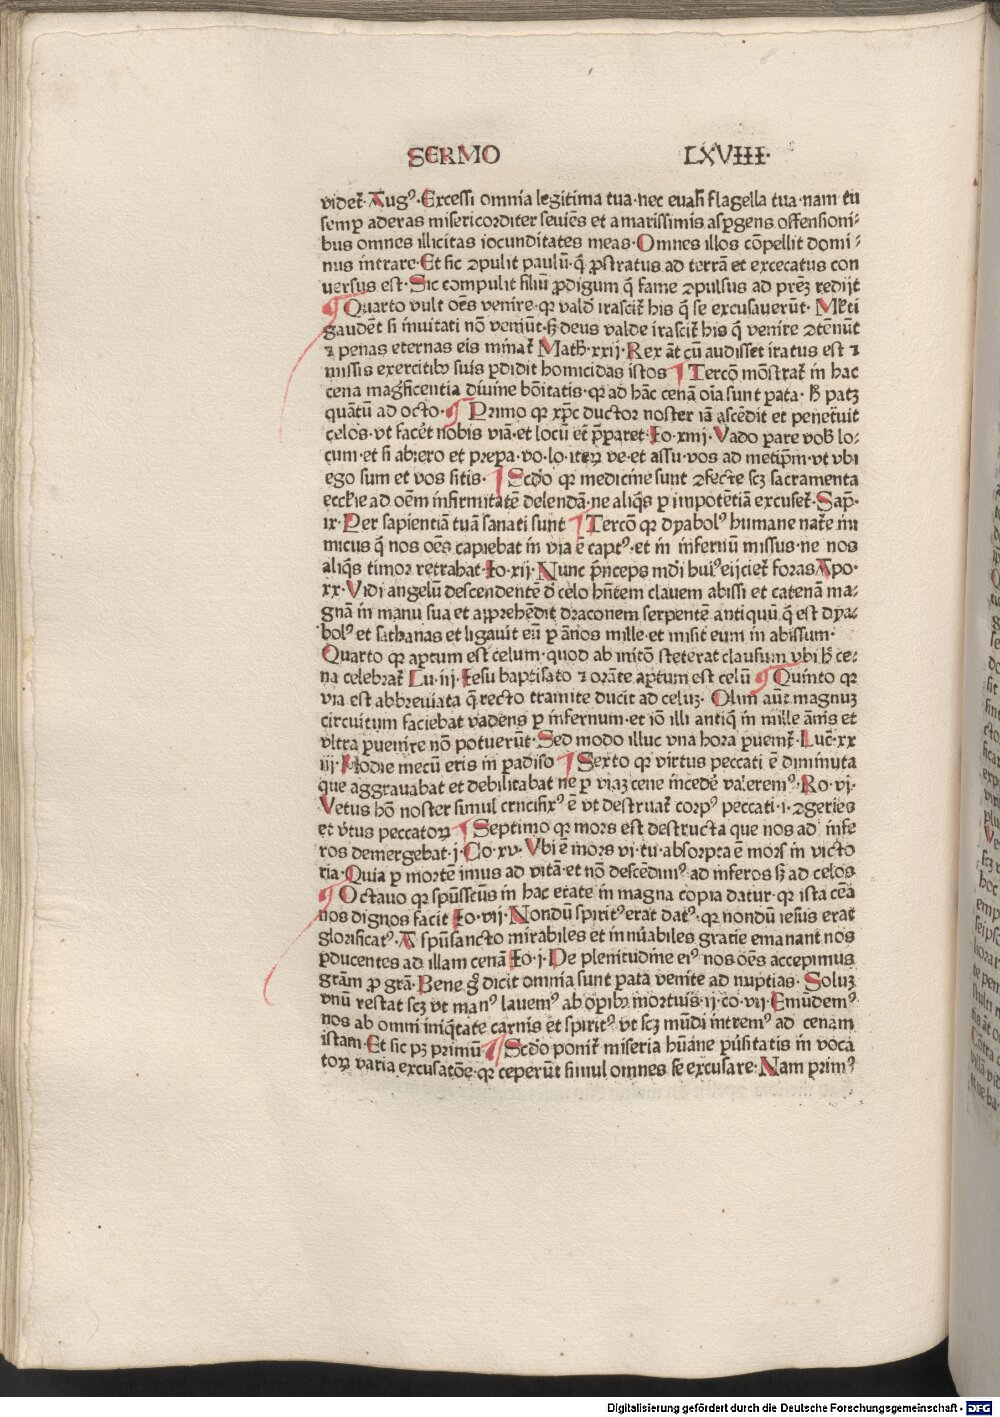 SERMO LXVIII·
videt᷑· Augꝰ· Excessi omnia legitima tua· nec euasi flagella tua· nam tu
semꝑ aderas misericorditer seuiēs et amarissimis asꝑgens offensioni⸗
bus omnes illicitas iocunditates meas· Omnes illos cōpellit domi⸗
nus intrare· Et sic ꝯpulit paulū· q̄ ꝓstratus ad terrā et excecatus con
uersus est· Sic compulit filiū ꝓdigum q̄ fame ꝯpulsus ad prēꝫ redijt
¶ Quarto vult oēs venire· qꝛ vald̄ irascit᷑ his q̄ se excusauerūt· Ml̓ti
gaudēt si inuitati nō veniūt· sꝫ deus valde irascit᷑ his q̄ venire ꝯtēnūt
⁊ penas eternas eis minat᷑ Math̄· xxij· Rex āt cū audisset iratus est ⁊
missis exercitibꝰ suis ꝑdidit homicidas istos ¶ Tercō mōstrat᷑ in hac
cena mag̓ficentia diuine bōitatis· qꝛ ad hāc cenā oīa sunt ꝑata· h̄ patꝫ
quātū ad octo· ¶ Primo qꝛ xp̄c ductor noster iā ascēdit et penet᷑uit
celos· vt facēt nobis viā· et locū et p̄ꝑaret· Io· xiiij· Vado ꝑare vob̄ lo⸗
cum· et si abiero et prepa· vo· lo· iteꝝ ve· et assu· vos ad metip̄m· vt vbi
ego sum et vos sitis· ¶ Scd̓o qꝛ medicine sunt ꝯfecte scꝫ sacramenta
ecclīe ad oēm infirmitatē delendā· ne aliq̄s ꝑ impotētiā excuset᷑· Sap̄·
ix· Per sapientiā tuā sanati sunt ¶ Tercō qꝛ dyabolꝰ humane nat᷑e ini
micus q̄ nos oēs capiebat in via ē captꝰ· et in infernū missus· ne nos
aliq̄s timor retrahat· Io· xij· Nunc p̄nceps mūdi huiꝰ eijciet᷑ foras Apo·
xx· Vidi angelū descendentē d̄ celo hn̄tem clauem abissi et catenā ma⸗
gnā in manu sua et apprehēdit draconem serpentē antiquū q̄ est dya⸗
bolꝰ et sathanas et ligauit eū ꝑ ānos mille· et misit eum in abissum·
Quarto qꝛ aꝑtum est celum· quod ab initō steterat clausum vbi h̄ ce⸗
na celebrat᷑ Lu· iij· Iesu baptisato ⁊ orāte aꝑtum est celū ¶ Quinto qꝛ
via est abbreuiata q̄ recto tramite ducit ad celuꝫ· Olim aūt magnuꝫ
circuitum faciebat vadens ꝑ infernum· et iō illi antiq̄ in mille ānis et
vltra ꝑuenire nō potuerūt· Sed modo illuc vna hora ꝑuenit᷑· Luc̄· xx
iij· Hodie mecū eris in ꝑadiso ¶ Sexto qꝛ virtus peccati ē diminuta
que aggrauabat et debilitabat ne ꝑ viaꝫ cene incedē valeremꝰ· Ro· vj·
Vetus hō noster simul crucifixꝰ ē vt destruat᷑ corpꝰ peccati· i· ꝯgeries
et v̓tus peccatoꝝ ¶ Septimo qꝛ mors est destructa que nos ad infe
ros demergebat· j· Co· xv· Vbi ē mors vi· tu· absorpta ē mors in victo
ria· Quia ꝑ mortē imus ad vitā· et nō descēdimꝰ ad inferos sꝫ ad celos
¶ Octauo qꝛ spūssctūs in hac etate in magna copia datur· qꝛ ista cēa
nos dignos facit Io· vij· Nondū spiritꝰ erat datꝰ· qꝛ nondū iesus erat
glorificatꝰ· A spūsancto mirabiles et innūabiles gratie emanant nos
ꝑducentes ad illam cenā Io· j· De plenitudine eiꝰ nos ōes accepimus
grām ꝓ grā· Bene g̊ dicit omnia sunt ꝑata venite ad nuptias· Soluꝫ
vnū restat scꝫ vt manꝰ lauemꝰ ab oꝑibꝫ mortuis· ij· co· vij· Emūdemꝰ
nos ab omni iniq̄tate carnis et spiritꝰ vt scꝫ mūdi intremꝰ ad cenam
istam· Et sic pꝫ primū ¶ Scd̓o ponit᷑ miseria hūane ꝑuersitatis in voca
toꝝ varia excusatōe· qꝛ ceperūt simul omnes se excusare· Nam primꝰ
Digitalisierung gefördert durch die Deutsche Forschungsgemeinschaft - DFG